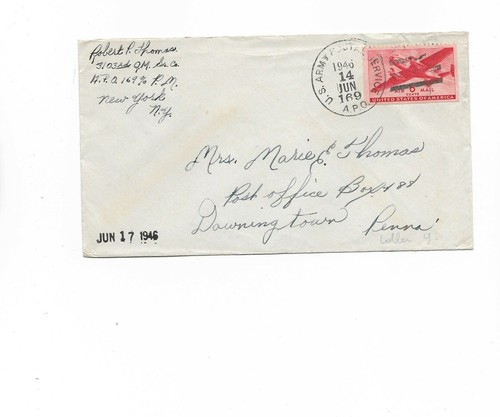 Robert P. Thomas
3103rd Q.M. Sv. Co.
A.P.O. 169 % P.M.
New York
N.Y.
U.S. ARMY POSTAL SERVICE
1946
14
JUN
169
A.P.O.
6 MAIL
CENTS
UNITED STATES OF AMERICA
Mrs. Marie E. Thomas
Post Office Box 488
Downingtown Penna.
JUN 17 1946